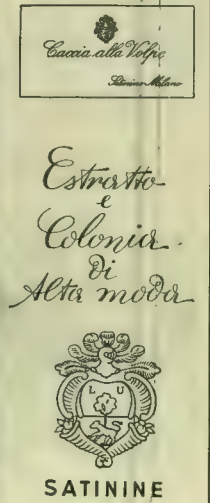 Caccia alla Volpe
Satinine Milano
Estratto
e
Colonia
di
Alta moda
L U
SATININE